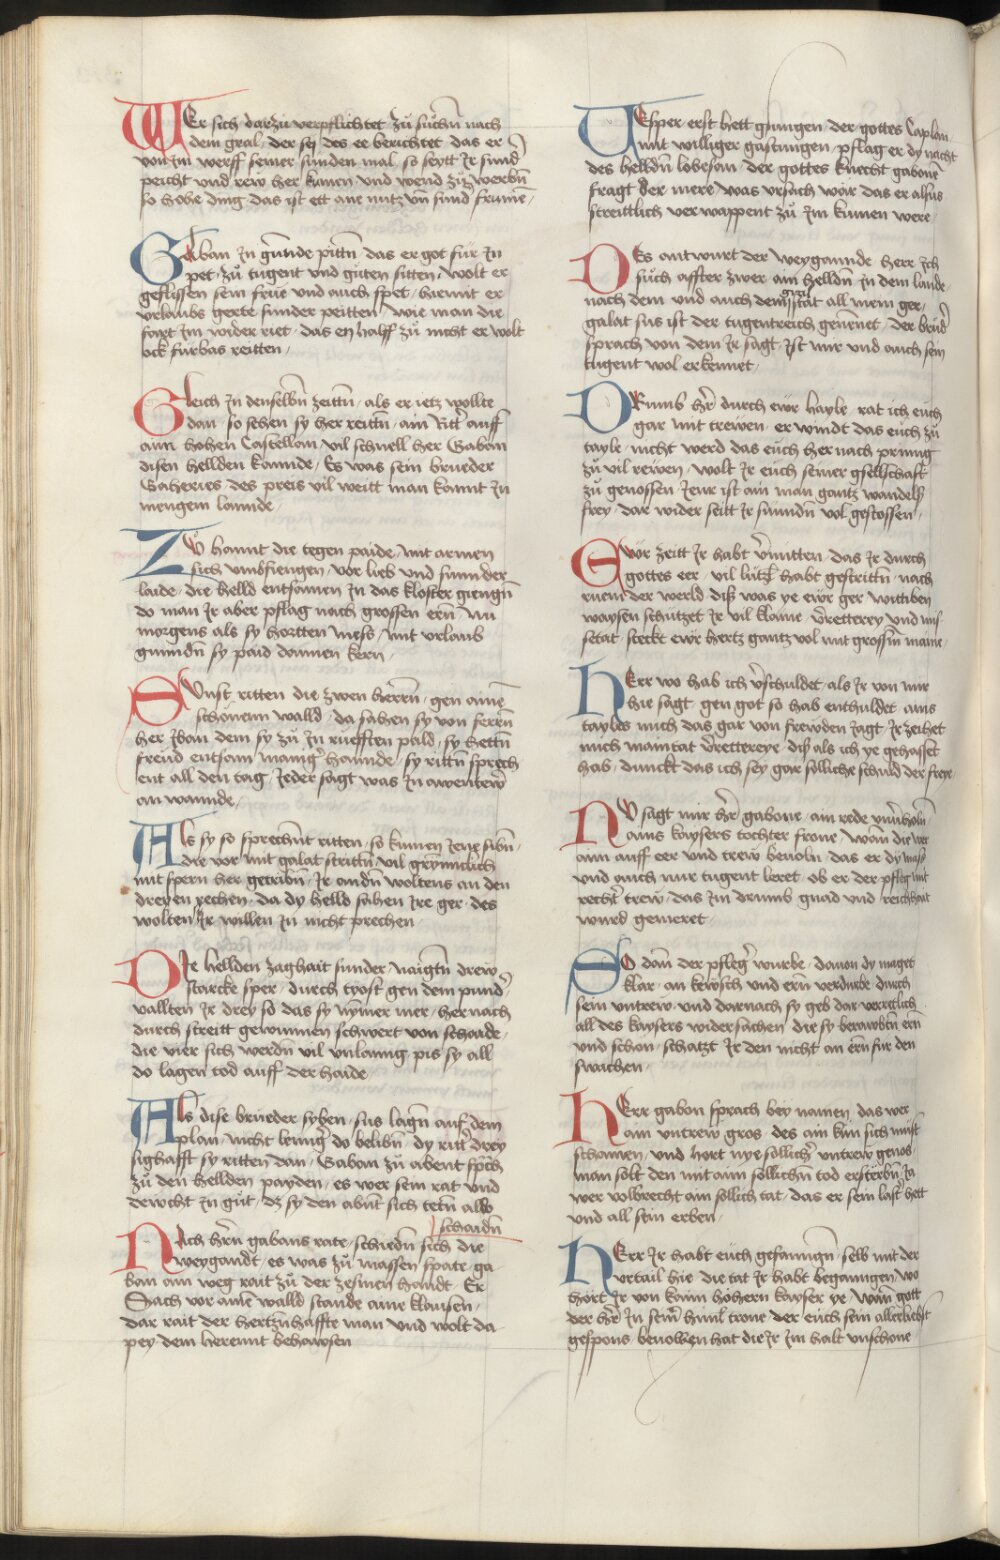 WEr sich darzu verpflichtet zů sůchñ nach
dem gral, der sej des ee berichtet das er
von im werff seiner sunden mal, so seytt Ir sund
peicht und rew her kunen, und wend zu werbñ
so hohe ding das ist ett ane nutz vñ sund frumẽ,
GAban In grunde pittñ das er got für In
pet, zů tugent und guten sitten, wolt er
geflissen sein frue und auch spet, hiemit er
vrlaubs gerte sunder peitten, wie man die
fart Im wider riet, das en halff zů nicht er wolt
ock fürbas reitten,
GLeich In denselbñ zeittñ, als er ietz wollte
dan, so sehen sy her reittñ, ain Ritt̾ auff
ain hohen Castellan vil schnell her Gaban
disen hellden kannde, Es was sein brueder
Gaheries des preis vil weitt man kannt In
mengem lannde,
ZŮ hannt die tegen paide, mit armen
sich vmbfiengen, vor lieb und sunnder
laide, die helld entsamen In das kloster giengñ
do man Ir aber pflag nach grossen ern, Nu
morgens als sy hortten mess, mit vrlaub
gunndñ sy paid dannen kern,
SUnst ritten die zwen herrñ, gen ainẽ
schönenn walld, da sahen sy von ferrñ
her Iban dem sy zů In rüefften pald, sy hettñ
freud entsam manig̾ hannde, sy rittñ sprech
ent all den tag, Ieder sagt was In awentewr̾
an wannde,
ALs sy so sprechñt ritten, so kumen Iene sibñ,
die vor mit galat strittñ, vil grymmlich
mit spern her getribñ, Ir andñ woltens an den
dreyen rechen, da dy helld sahen Ire ger, des
wolten Ir willen In nicht prechen,
DIe hellden zaghait sunder, naigtñ drew
starcke sper, durch tyost gen dem pund̾,
vallten Ir drey so das sy nymer mer, hernach
durch streitt gewunnen schwert von schaide,
die vier sich werdñ vil vnlanng pis sy all
do lagen tod auff der haide
ALs dise brueder syben, sus lagñ auf dem
plan, nicht lennig̾ do belibñ, dy ritt̾ drey
sighafft sy ritten dan, Gaban zů abent sp̃ch
zů den hellden payden, es wer sein rat und
deucht In gut, dz sy den abñt sich tetñ also
schaidñ
NAch hern gabans rate, schiedñ sich die
weygandt, es was zů massen spate, ga
ban ain weg rait zů der zesmen handt, Er
Sach vor ainẽ walld stande aine klausen,
dar rait der hertznhaffte man und wolt da
pey dem heremit behawsen
VEsper erst hett gsungen, der gottes Caplan,
mit williger gastungen, pflag er dy nacht
des helldñ lobesan, der gottes knecht gabonẽ
fragt der mere, was vrsach wär das er alsus
streittlich verwappent zů Im kumen were,
DEs antwurt der weygannde herr Ich
such affter zwer ain helldñ In dem lande,
nach dem und auch dem gral stat all mein ger,
galat sus ist der tugentreich genennet, der brud̾
sprach von dem Ir sagt, Ist mir und auch sein
tugent wol erkennet,
DRumb h̾r durch ewr hayle, rat ich euch
gar mit trewen, er windt das euch zů
tayle, nicht werd das euch her nach prinng
zů vil rewen, wolt Ir euch seiner gsellschafft
zů genossen Iener ist ain man gantz wandels
frey, dar wider seitt Ir sunndñ vol gestossen,
EWr zeitt Ir habt v̾mitten, das Ir durch
gottes eer, vil lutzl habt gestrittñ, nach
ruem der werld diß was ye ewr ger, wittiben
waysen schützet Ir vil klaine, v̾retterey und mis
setat, steckt ewr hertz gantz vol mit grossm̃ maine,
HErr wo hab ich v̾schuldet, als Ir von mir
hie sagt, gen got so hab enthuldet, ains
tayles mich das gar von frewden Iagt, Ir zeihet
mich mainstat v̾rettereye, diß als ich ye gehasset
hab, dunckt das ich sey gar solliche schuld der freye,
NŮ sagt mir h̾r gabone, ain rede vnu̾holn̄,
ains kaysers tochter frone, wan̄ die wer
ainn auff eer und trew beuoln, das er dy mass
und auch nur tugent leret, ob er der pfleg mit
recht̾ trew, das Im drumb gnad und reichhait
wurd gemeret,
SO dan̄ der pfleg̾ wurbe, dauon dy maget
klar, an kewsch und ern verdurbe, durch
sein vntrew und darnach sy geb dar verretlich
all des kaysers widersachen die sy berawbtñ ern
und schon, schatzt Ir den nicht an ern fur den
swachen,
HErr gabon sprach bey namen, das wer
ain vntrew gros, des ain kun sich müst
schamen, und hort nye sollich̾ vntrew genos,
man solt den mit ainn sollichñ tod ersterbñ, Ja
wer volbrecht ain sollich tat, das er sein last̾ hett
und all sein erben,
HErr Ir habt euch gefanngñ, selb mit der
vrtail hie, die tat Ir habt begangen, wo
hört Ir von kainn höhern kayser ye, wan̄ gott
der h̾r In sein̄ himl trone, der euch sein allerliebst
gespons, beuolhen hat die Ir Im halt vnschone